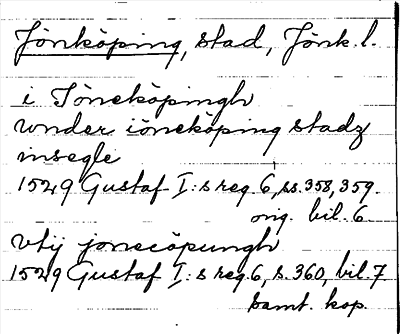 Jönköping, stad, Jönk. l.
i Jöneköpingh
wnder iöneköping stadz
insegle
1529 Gustaf I:s reg. 6, ss. 358, 359.
orig. bil. 6.
vtij joneköpungh
1529 Gustaf I:s reg. 6, s. 360, bil. 7
samt. kop.